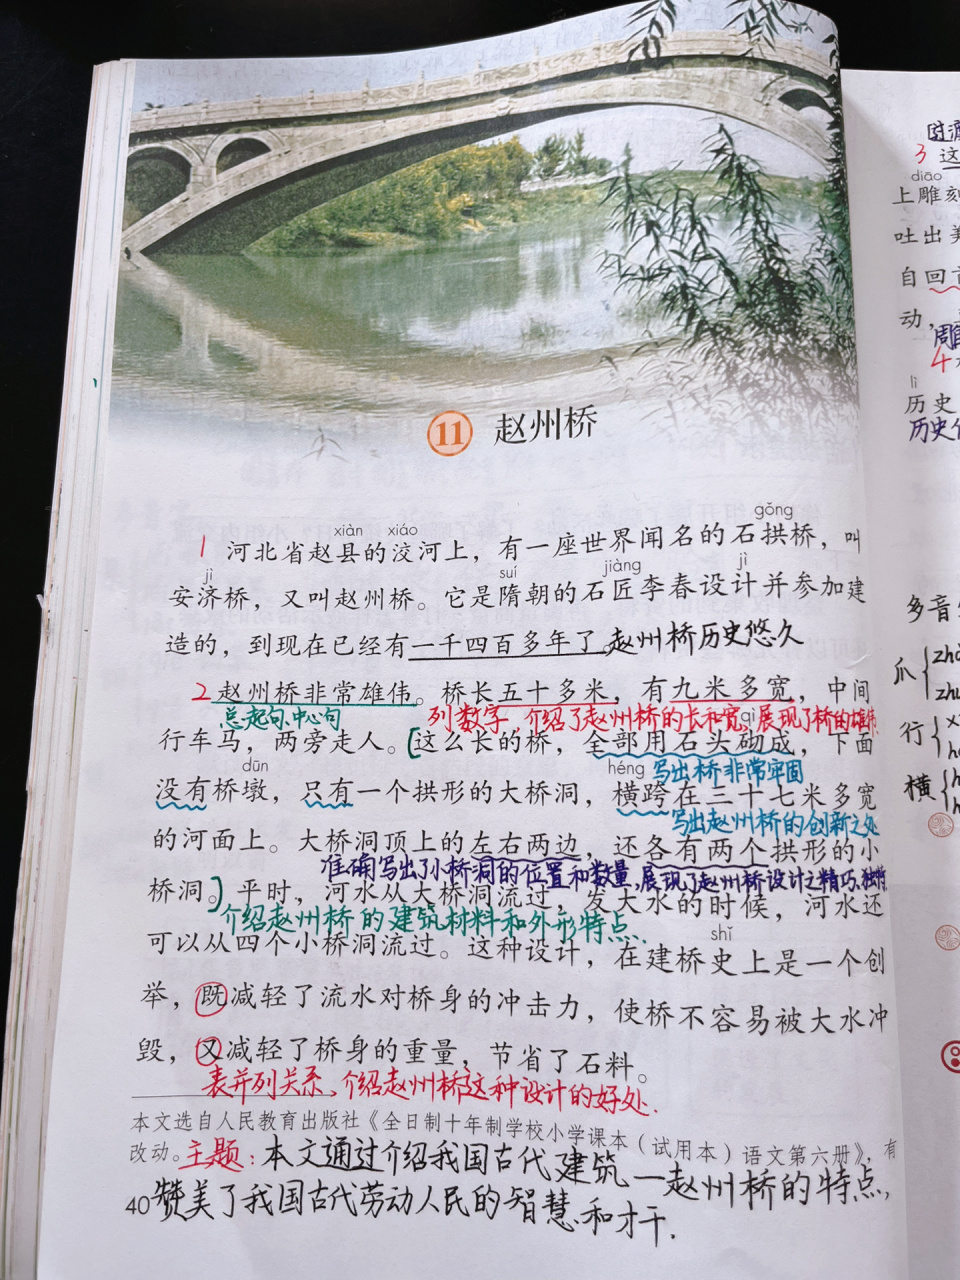 11 赵州桥
xiàn xiáo gǒng
1 河北省赵县的洨河上，有一座世界闻名的石拱桥，叫
jì suí jiàng jì
安济桥，又叫赵州桥。它是隋朝的石匠李春设计并参加建
造的，到现在已经有一千四百多年了。赵州桥历史悠久
2 赵州桥非常雄伟。桥长五十多米，有九米多宽，中间
总起句、中心句 列数字，介绍了赵州桥的长和宽，展现了桥的雄伟
qì
行车马，两旁走人。这么长的桥，全部用石头砌成，下面
dūn héng 写出桥非常牢固
没有桥墩，只有一个拱形的大桥洞，横跨在三十七米多宽
写出赵州桥的创新之处
的河面上。大桥洞顶上的左右两边，还各有两个拱形的小
准确写出了小桥洞的位置和数量，展现了赵州桥设计之精巧、独特
桥洞。平时，河水从大桥洞流过，发大水的时候，河水还
介绍赵州桥的建筑材料和外形特点.
shǐ
可以从四个小桥洞流过。这种设计，在建桥史上是一个创
举，既减轻了流水对桥身的冲击力，使桥不容易被大水冲
毁，又减轻了桥身的重量，节省了石料。
表并列关系、介绍赵州桥这种设计的好处.
本文选自人民教育出版社《全日制十年制学校小学课本（试用本）语文第六册》，有
改动。主题：本文通过介绍我国古代建筑—赵州桥的特点，
40 赞美了我国古代劳动人民的智慧和才干.
3 这
diāo
上雕刻
吐出美
自回首
动，
4
lì
历史
历史
多音
爪
行
横